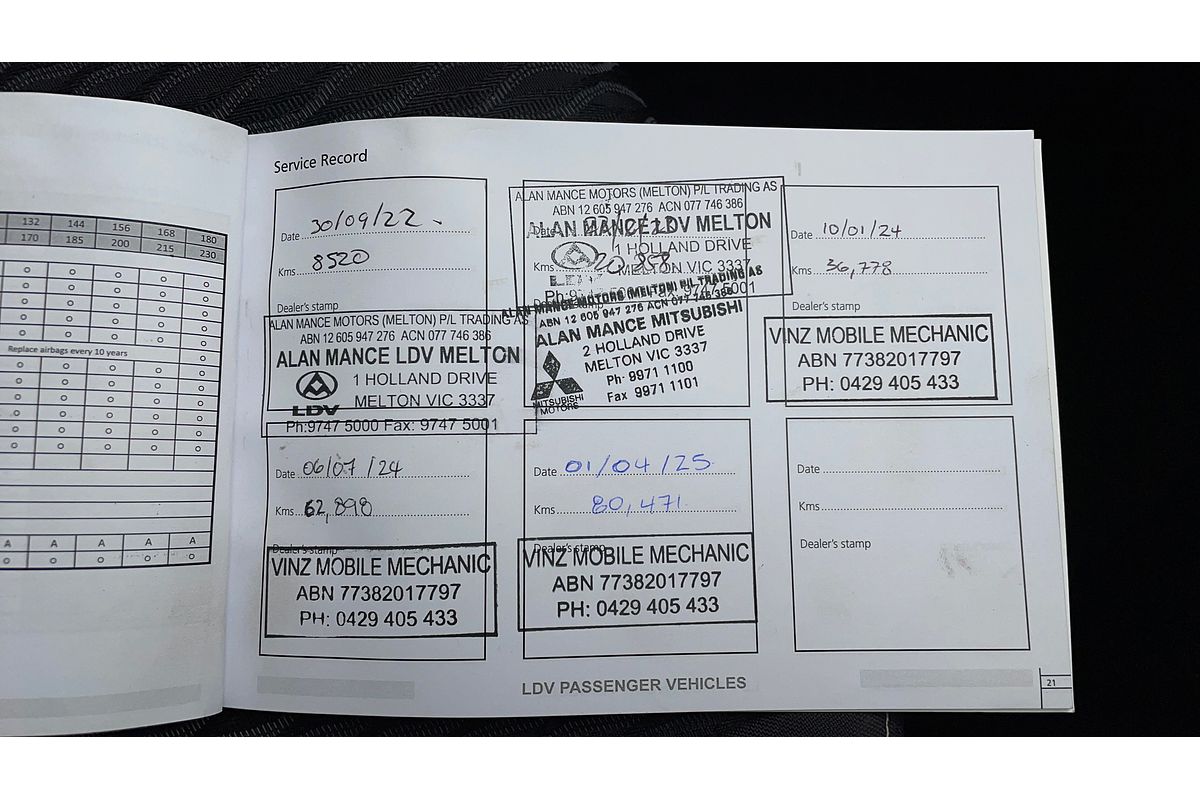 132 144 156 168 180
170 185 200 215 230
o o o o
o o o o o
o o o o o
o o o o o
o o o o o
Replace airbags every 10 years o
o o o o o
o o o o o
o o o o o
o o o o o
o o o o o
A A A A A
o o o o o
Service Record
Date 30/09/22
Kms 8520
Dealer's stamp
ALAN MANCE MOTORS (MELTON) P/L TRADING AS
ABN 12 605 947 276 ACN 077 746 386
ALAN MANCE LDV MELTON
LDV
1 HOLLAND DRIVE
MELTON VIC 3337
Ph:9747 5000 Fax: 9747 5001
ALAN MANCE MOTORS (MELTON) P/L TRADING AS
ABN 12 605 947 276 ACN 077 746 386
ALAN MANCE LDV MELTON
Date
1 HOLLAND DRIVE
Kms 20,858
LDV
MELTON VIC 3337
Ph:9747 5000 Fax: 9747 5001
Dealer's stamp
ALAN MANCE MOTORS (MELTON) P/L TRADING AS
ABN 12 605 947 276 ACN 077 746 386
ALAN MANCE MITSUBISHI
2 HOLLAND DRIVE
MELTON VIC 3337
Ph- 9971 1100
Fax 9971 1101
MITSUBISHI
MOTORS
Date 10/01/24
Kms 36,778
Dealer's stamp
VINZ MOBILE MECHANIC
ABN 77382017797
PH: 0429 405 433
Date 06/07/24
Kms 62,898
Dealer's stamp
VINZ MOBILE MECHANIC
ABN 77382017797
PH: 0429 405 433
Date 01/04/25
Kms 80,471
Dealer's stamp
VINZ MOBILE MECHANIC
ABN 77382017797
PH: 0429 405 433
Date
Kms
Dealer's stamp
LDV PASSENGER VEHICLES
21